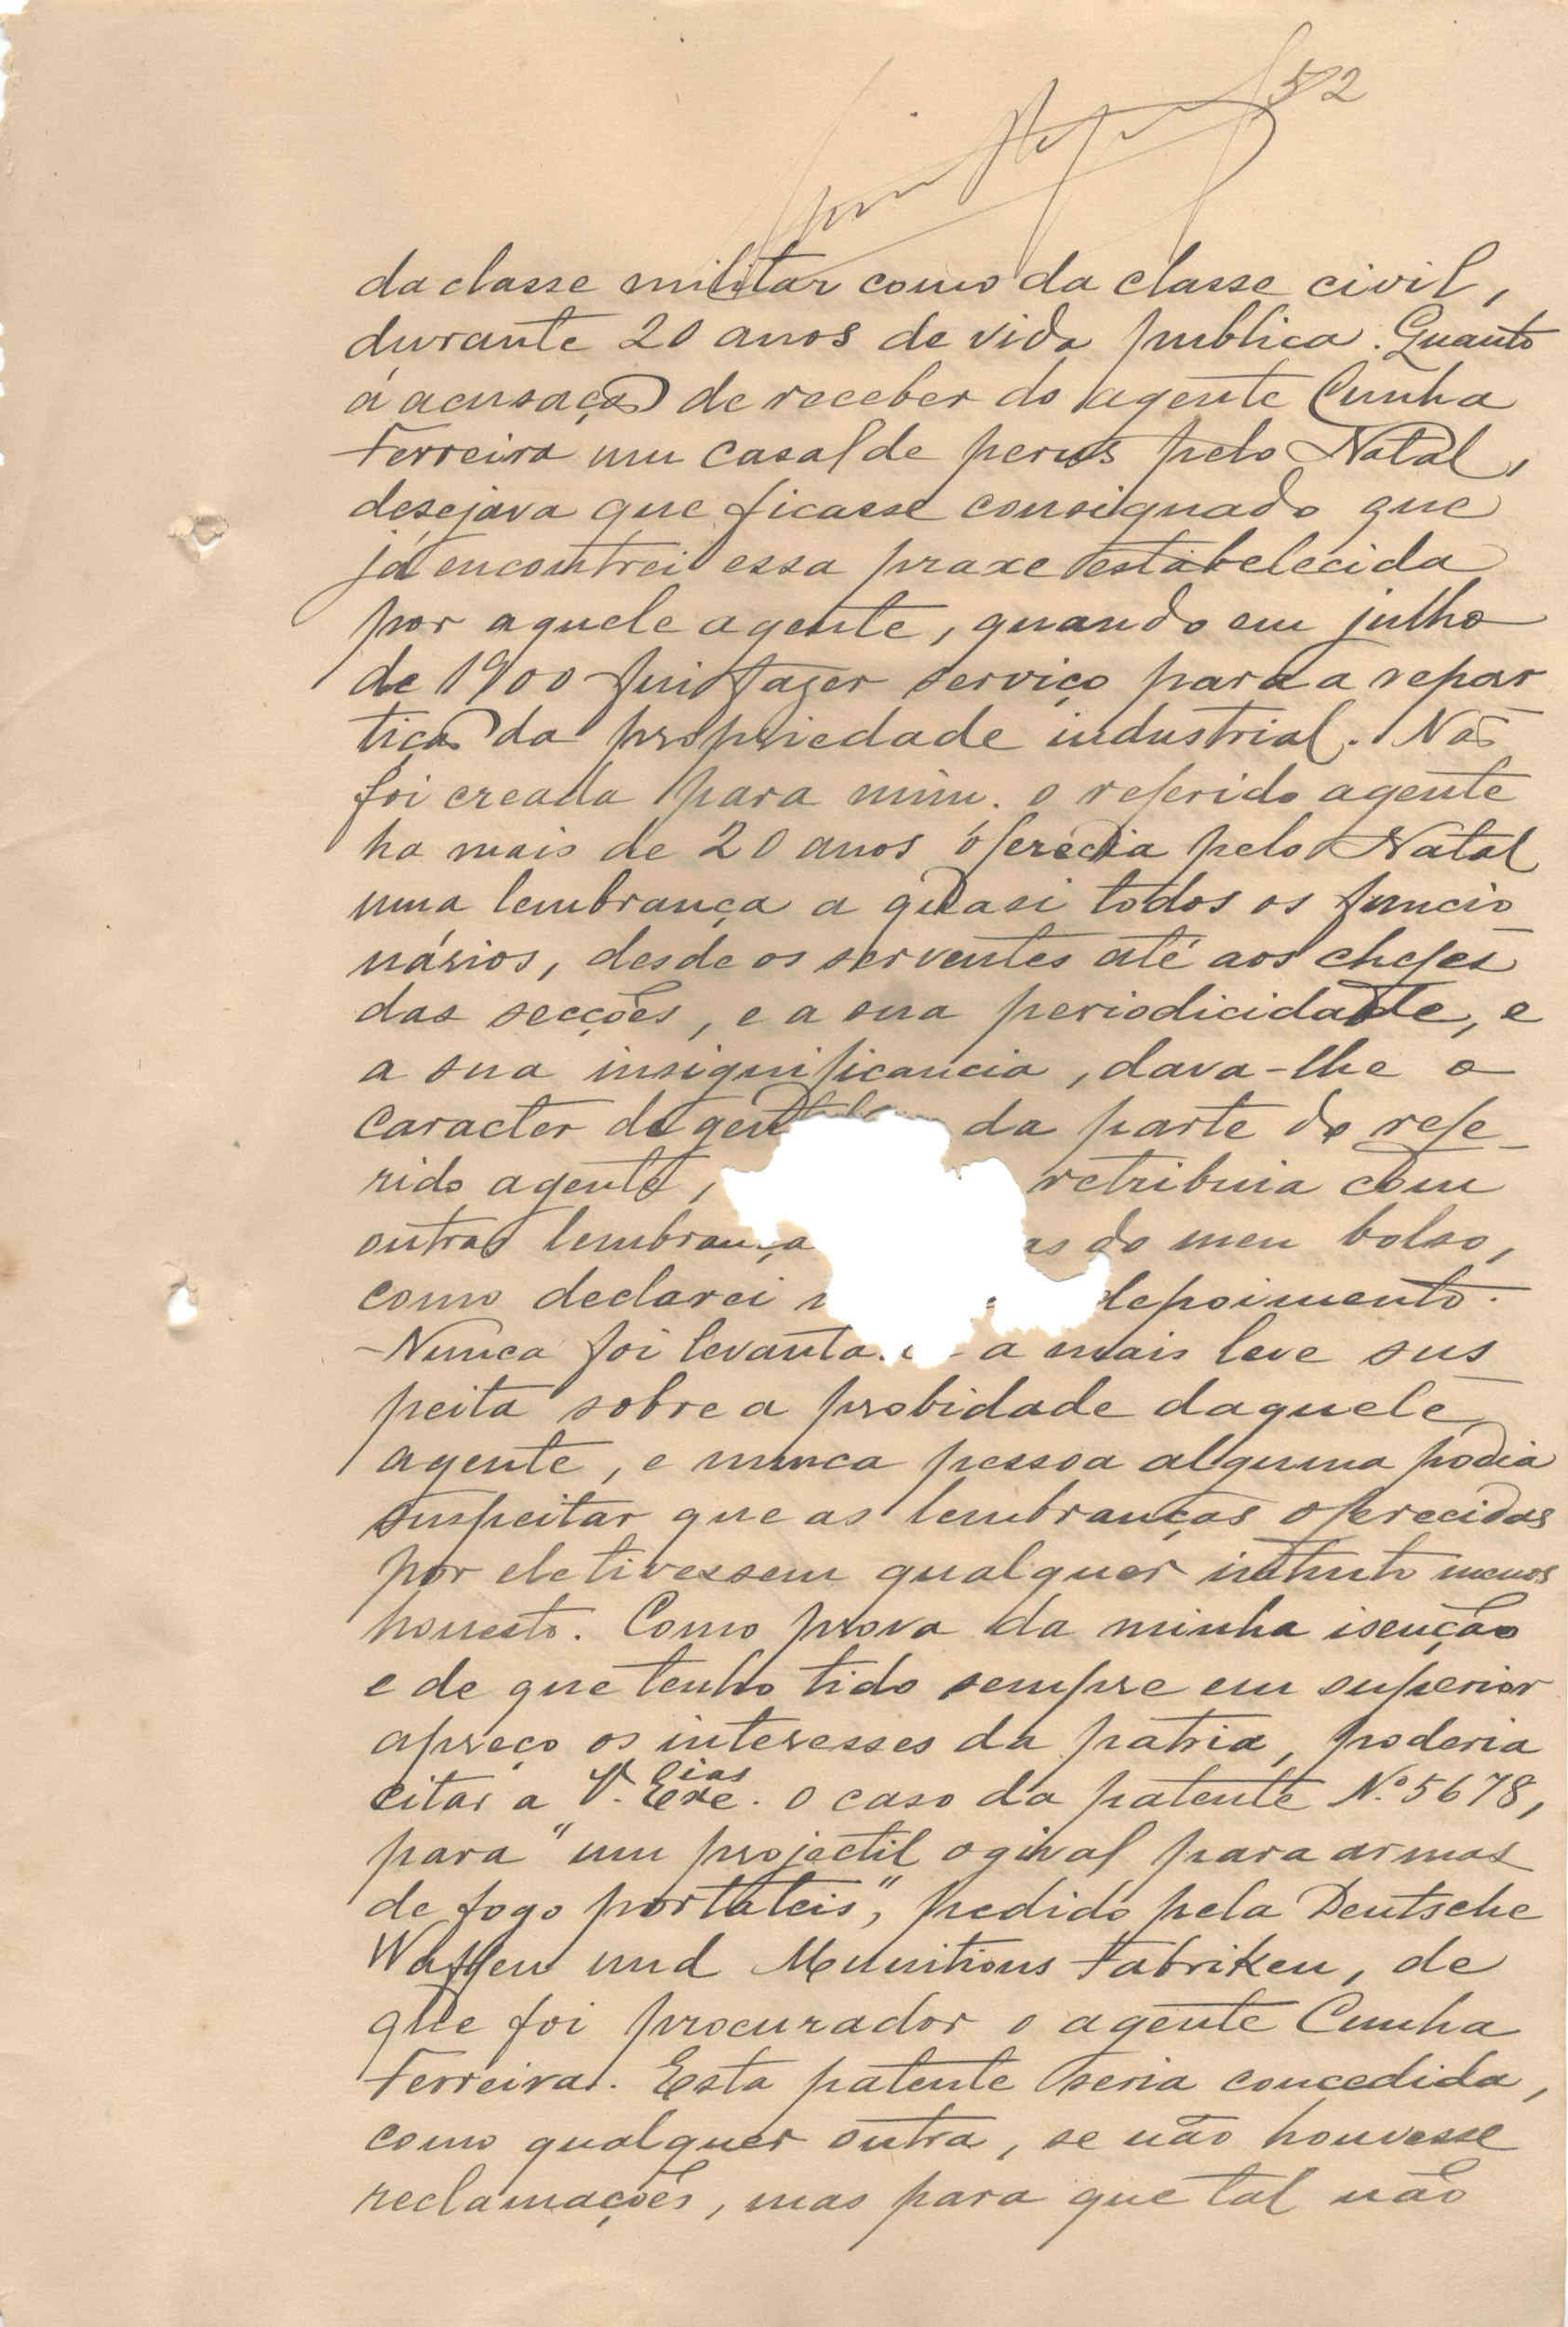 52
da classe militar como da classe civil,
durante 20 anos de vida publica. Quanto
á acusação de receber do agente Cunha
Ferreira um casal de perus pelo Natal,
desejava que ficasse consignado que
já encontrei essa praxe estabelecida
por aquele agente, quando em julho
de 1900 fui fazer serviço para a repar
tição da propriedade industrial. Não
foi creada para mim. O referido agente
ha mais de 20 anos oferecia pelo Natal
uma lembrança a quasi todos os funcio
nários, desde os serventes até aos chefes
das secções, e a sua periodicidade, e
a sua insignificancia, dava-lhe o
caracter de da parte do refe-
rido agente, retribuia com
outras lembrança as do meu bolso,
como declarei depoimento.
Nunca foi levanta a mais leve sus-
peita sobre a probidade daquele
agente, e nunca pessoa alguma podia
suspeitar que as lembranças oferecidas
por ele tivessem qualquer intuito menos
honesto. Como prova da minha isenção
e de que tenho tido sempre em superior
apreço os interesses da patria, poderia
citar a V. Exc.ias o caso da patente N.º 5678,
para "um projectil ogival para armas
de fogo portateis", pedido pela Deutsche
Waffen und Munitions Fabriken, de
que foi procurador o agente Cunha
Ferreira. Esta patente seria concedida,
como qualquer outra, se não houvesse
reclamações, mas para que tal não